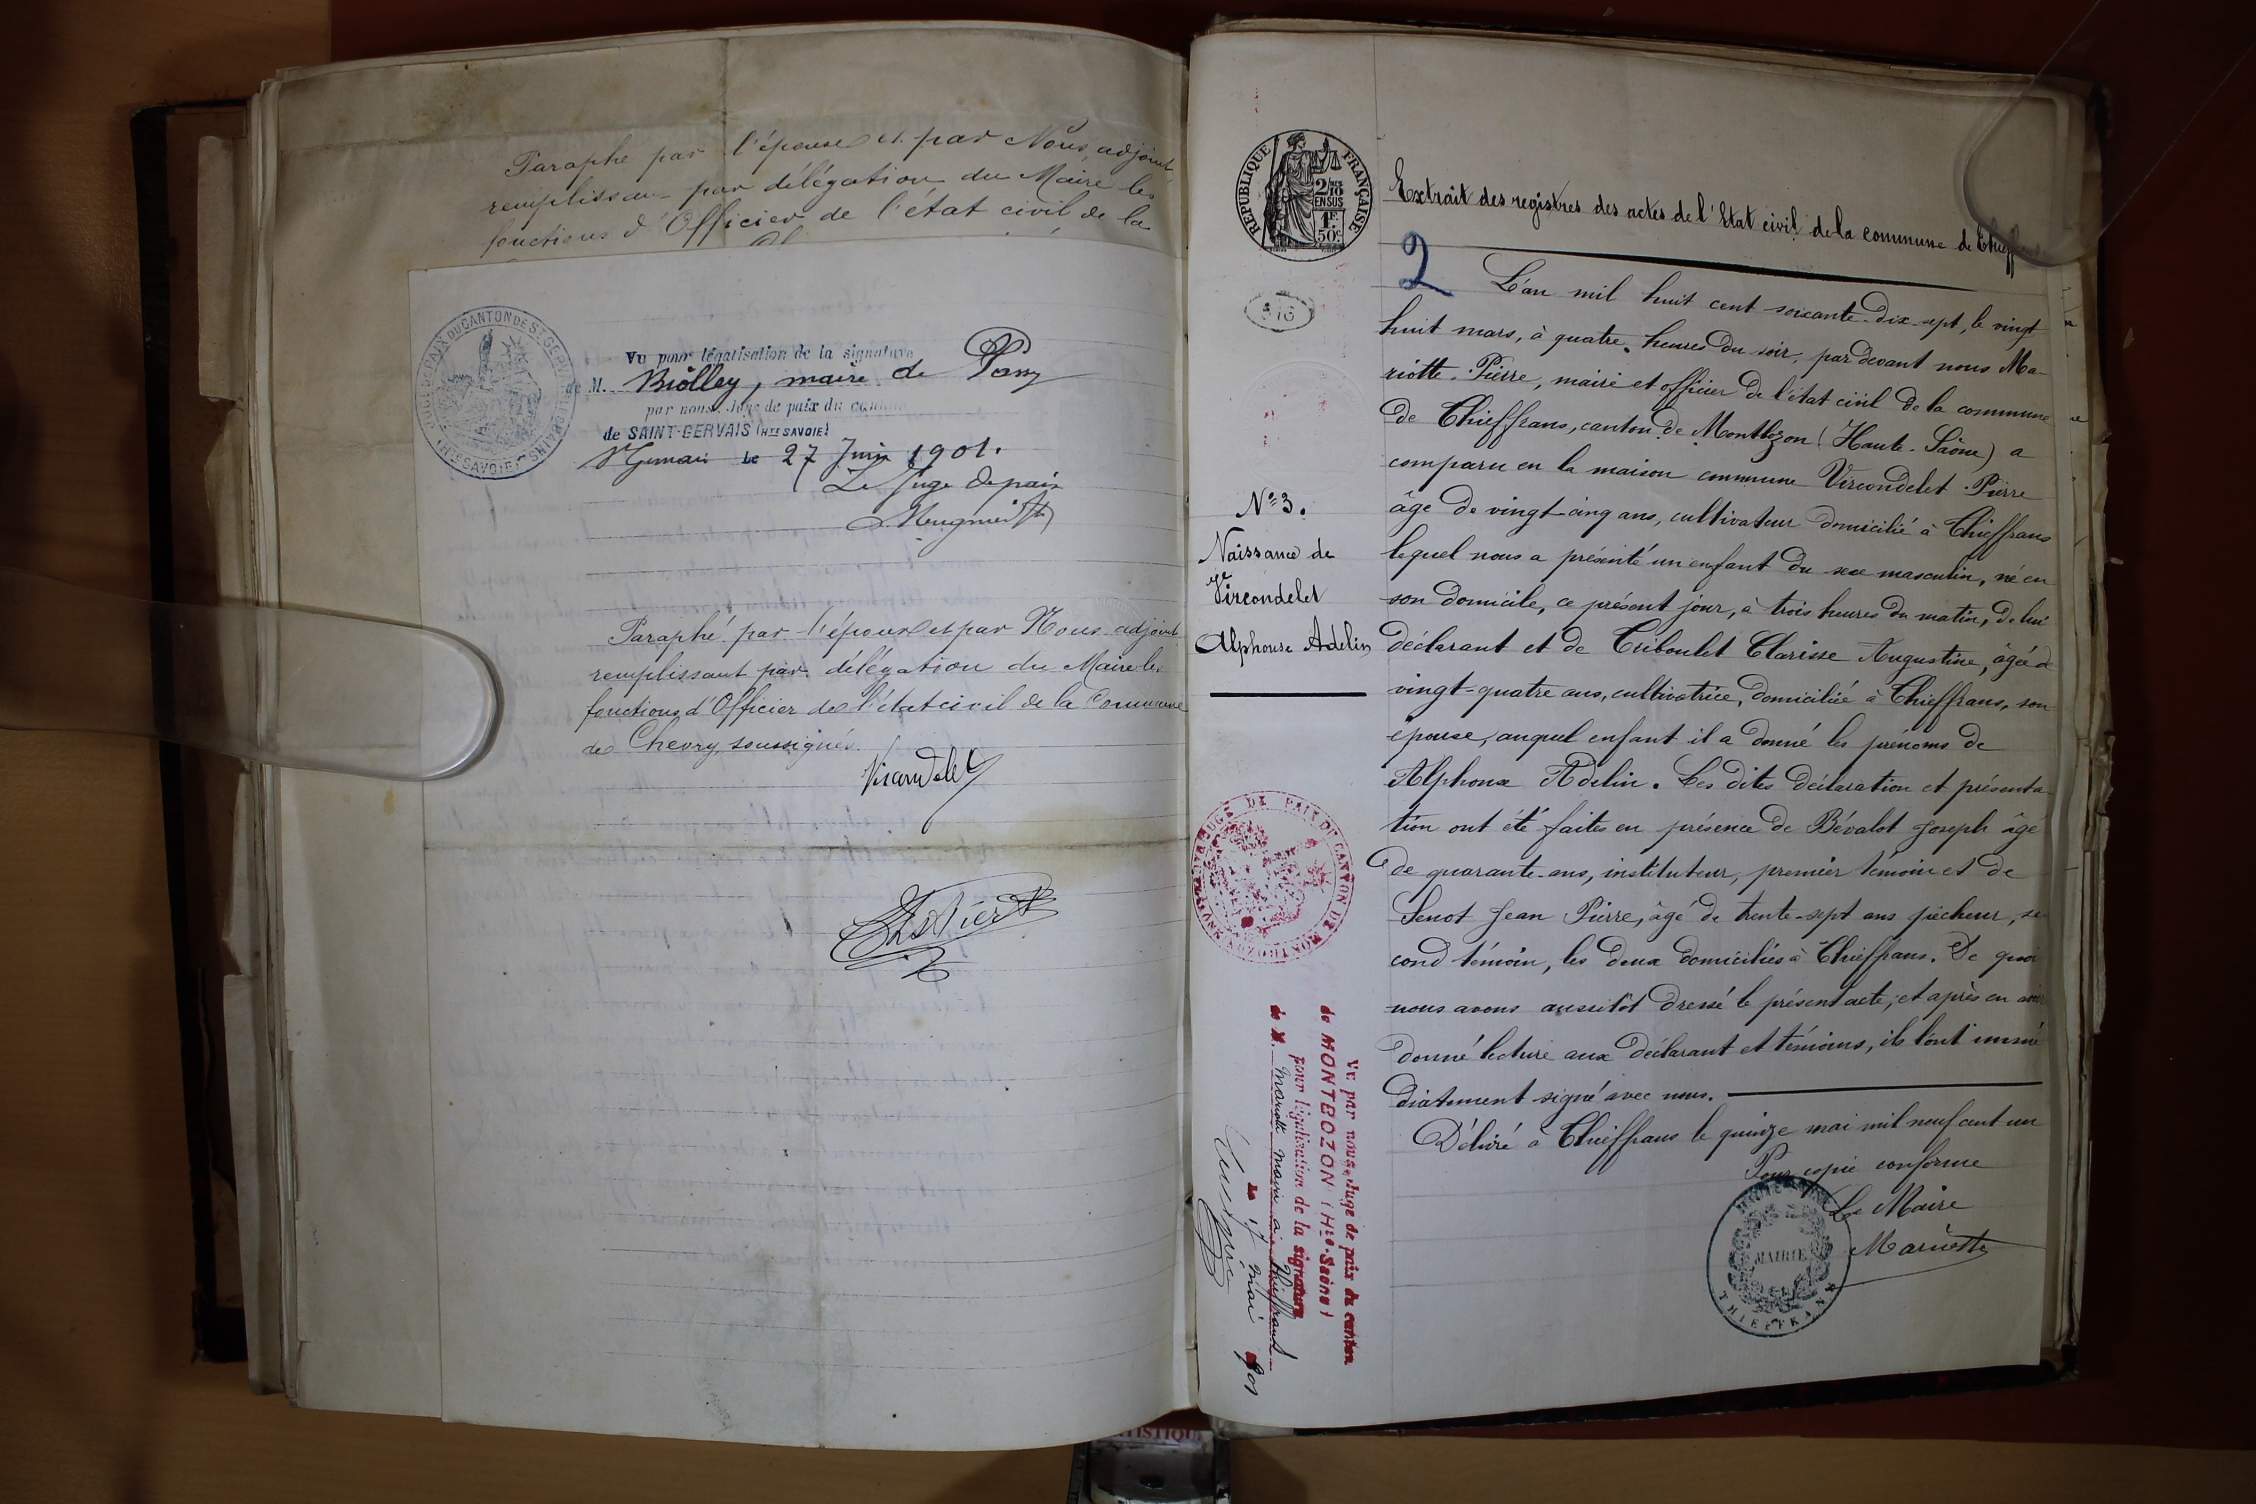 Paraphé par l'épouse et par Nous, adjoint
remplissant par délégation du Maire les
fonctions d'Officier de l'état civil de la
JUGE DE PAIX DU CANTON DE ST GERVAIS
(HTE SAVOIE)
Vu pour légalisation de la signature
de M. Biolley, maire de Passy
par nous, Juge de paix du canton
de SAINT-GERVAIS (HTE SAVOIE)
St Gervais Le 27 Juin 1901.
Le Juge de paix
Paraphé par l'épouse et par Nous adjoint
remplissant par délégation du Maire les
fonctions d'Officier de l'état civil de la Commune
de Chevry, soussignés.
Vircondelet
REPUBLIQUE FRANÇAISE
2/10
EN SUS
1F.
50c.
Extrait des registres des actes de l'Etat civil de la commune de Thieffrans
2
L'an mil huit cent soixante-dix-sept, le vingt
huit mars, à quatre heures du soir, par devant nous Ma-
riotte Pierre, maire et officier de l'état civil de la commune
de Thieffrans, canton de Montbozon (Haute-Saône) a
comparu en la maison commune Vircondelet Pierre
âgé de vingt-cinq ans, cultivateur domicilié à Thieffrans
lequel nous a présenté un enfant du sexe masculin, né en
son domicile, ce présent jour, à trois heures du matin, de lui
déclarant et de Triboulet Clarisse Augustine, âgée de
vingt-quatre ans, cultivatrice, domiciliée à Thieffrans, son
épouse, auquel enfant il a donné les prénoms de
Alphonse Adelin. Les dites déclaration et présenta
tion ont été faites en présence de Bévalot Joseph âgé
de quarante-ans, instituteur, premier témoin et de
Senot Jean Pierre, âgé de trente-sept ans pêcheur, se
cond témoin, les deux domiciliés à Thieffrans. De quoi
nous avons aussitôt dressé le présent acte, et après en avoir
donné lecture aux déclarant et témoins, ils l'ont immé
diatement signé avec nous.
Délivré à Thieffrans le quinze mai mil neuf cent un
Pour copie conforme
Le Maire
Mariotte
MAIRIE
THIEFFRANS
No 3.
Naissance de
Vircondelet
Alphonse Adelin
JUGE DE PAIX DU CANTON DE MONTBOZON
Vu par nous, Juge de paix du canton
de MONTBOZON (Hte-Saône)
pour légalisation de la signature
de M. Mariotte maire à Thieffrans
Le 17 mai 1901